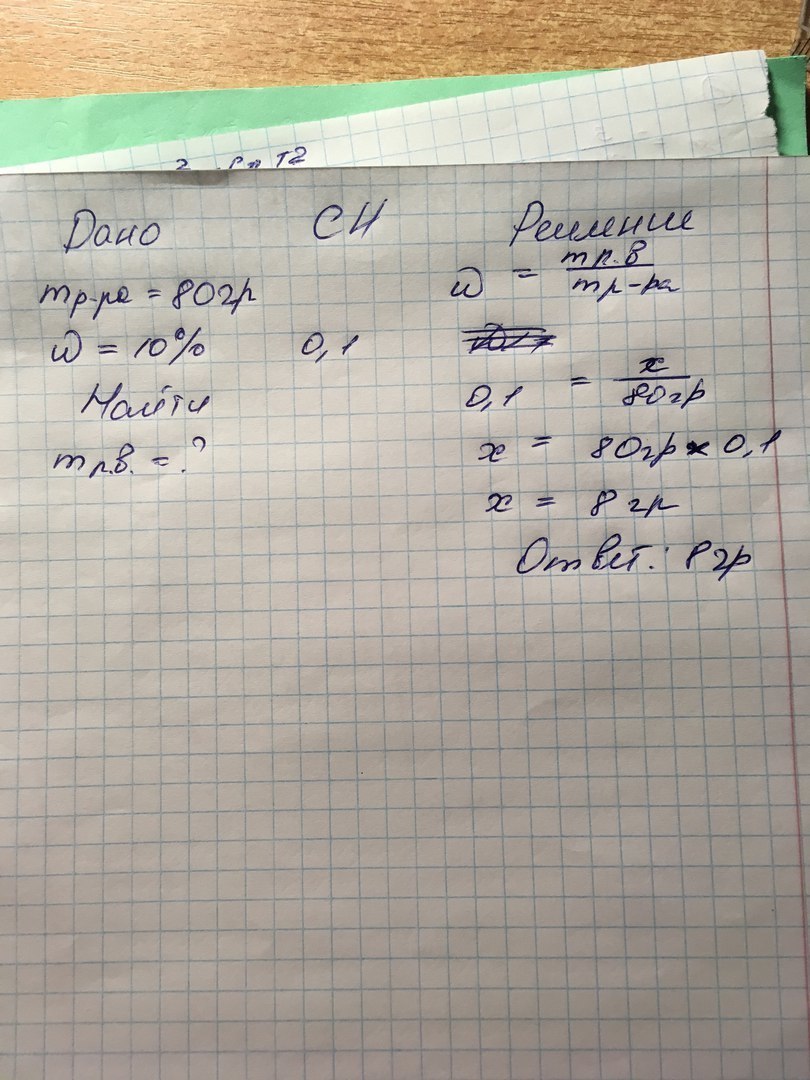 Дано
mр-ра = 80гр
ω = 10%
Найти
mр.в. = ?
СИ
0,1
Решение
ω = mр.в / mр-ра
0,1 = x / 80гр
x = 80гр × 0,1
x = 8 гр
Ответ: 8гр